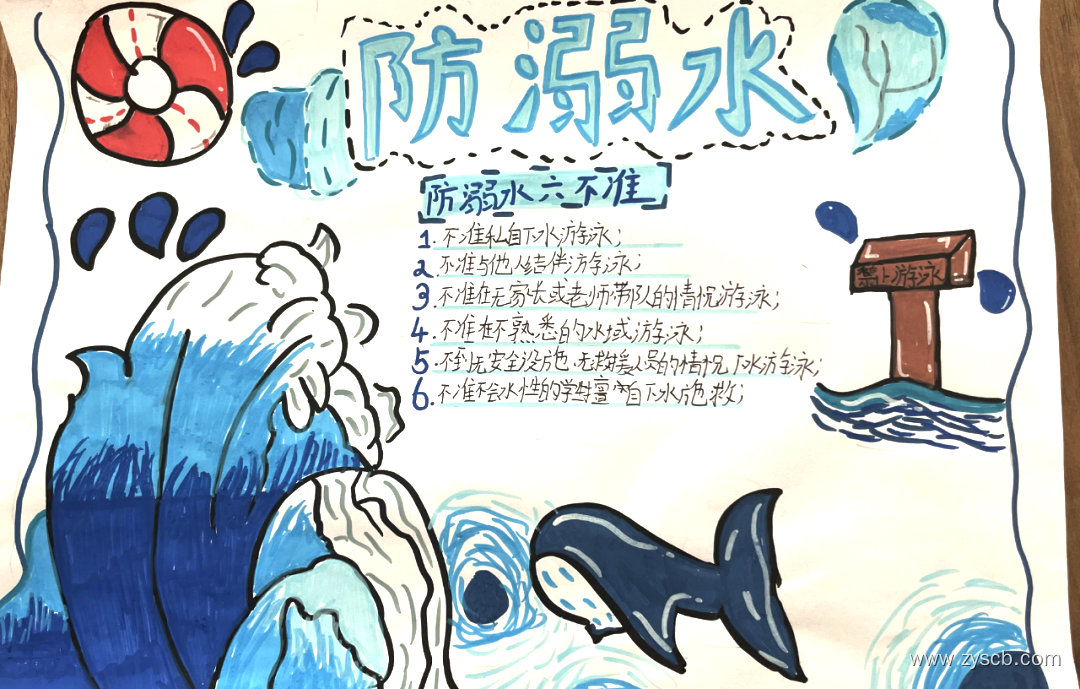 防溺水
防溺水六不准
1. 不准私自下水游泳；
2. 不准与他人结伴游泳；
3. 不准在无家长或老师带队的情况游泳；
4. 不准在不熟悉的水域游泳；
5. 不到无安全设施、无救援人员的情况下水游泳；
6. 不准不会水性的学生擅自下水施救；
禁止游泳
www.zyscb.com